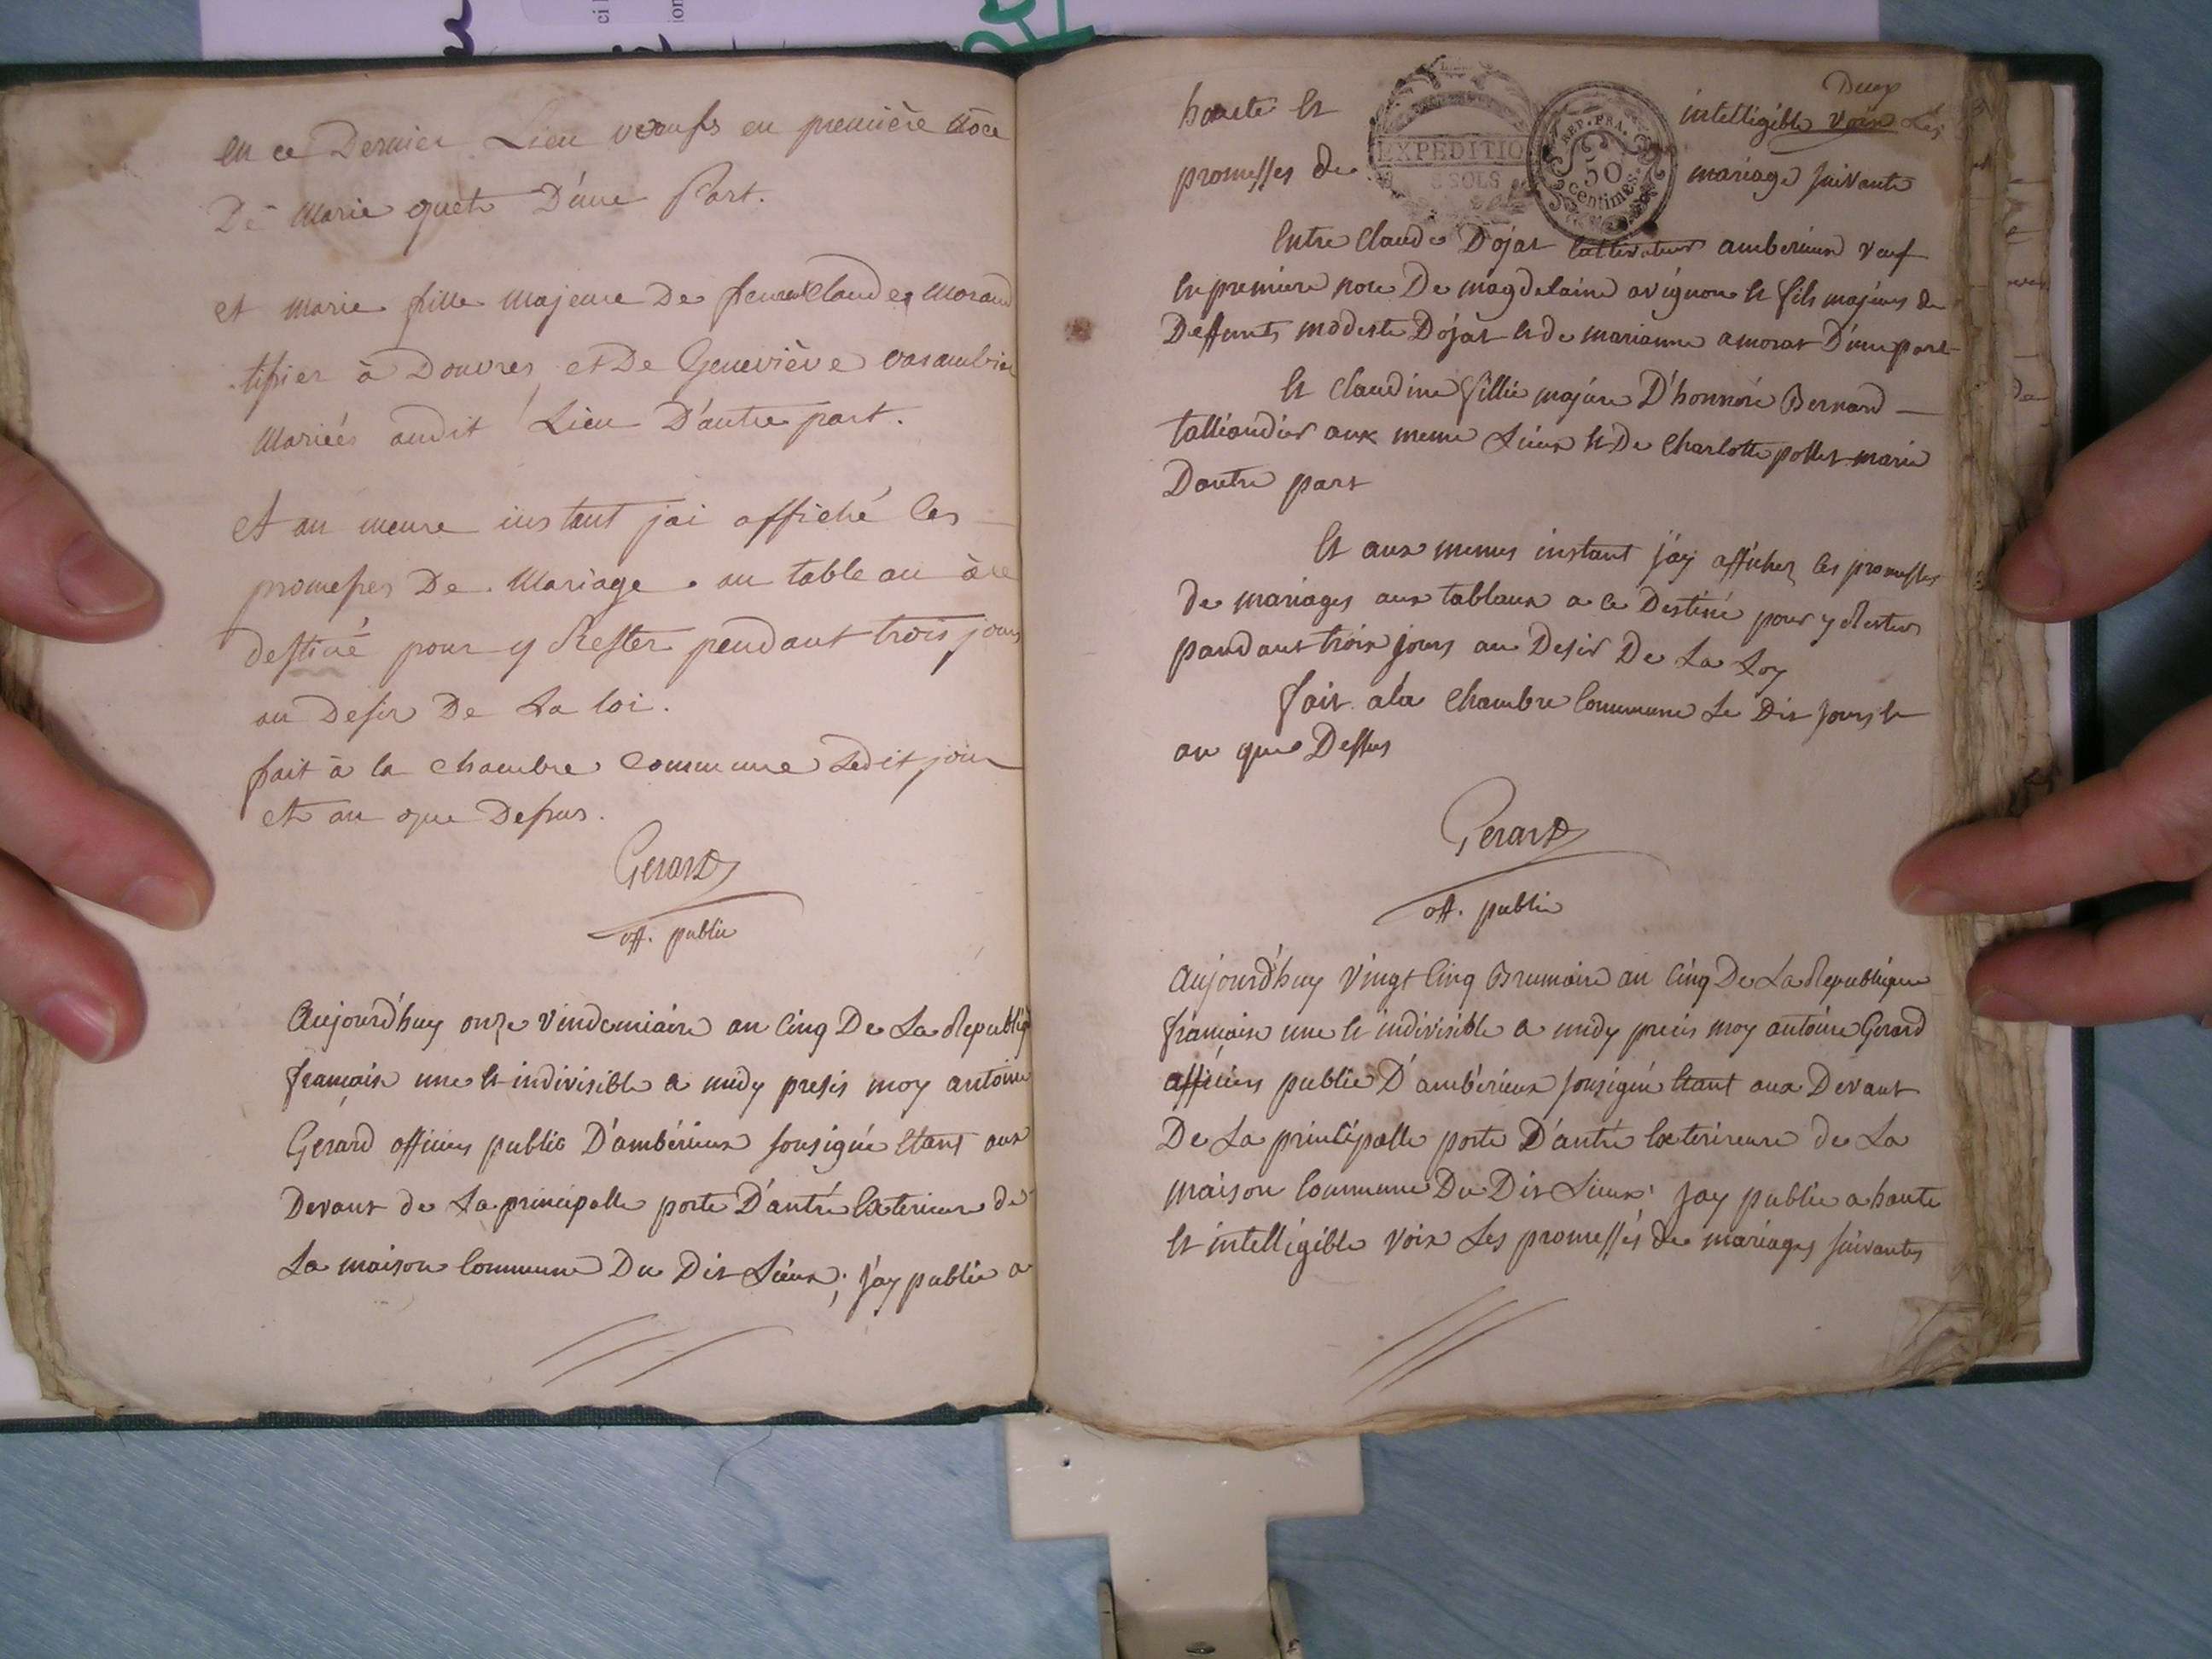 en ce Dernier Lieu veufs en première noce
De Marie quet D'une Part.
et marie fille Majeure De Claude Morand
tissier à Douvres et De Geneviève
Mariés audit Lieu D'autre part.
et au meme instant jai affiché les
promesses De Mariage au tableau à ce
destiné pour y Rester pendant trois jours
au Desir De La loi.
fait à la chambre commune Ledit jour
et an que Dessus.
Gerard
off. public
Aujourd'huy onze vindemiaire an Cinq De La Republiq
françaisse une et indivisible a midy presis moy antoine
Gerard officier public D'ambérieux sousigné Etant aux
Devant de La principalle porte D'antré Exterieure de
La maison Commune Du Dit Lieux; j'ay publié a
Deux
haute et intelligible voix Les
promesses de mariage suivante
EXPEDITIO
SOLS
REP. FRA.
50
centimes
Entre Claude Dojat Cultivateur amberieux veuf
En premiere nore De magdelaine avignon et fils majeurs de
Deffunts modeste Dojat et de marianne amorat D'une part
Et Claudine fillie majeure D'honnoré Bernard
talliandier aux meme Lieux et De Charlotte pollet marié
Dautre part
Et aux memes instant j'ay afficher les promesses
de mariages aux tablaux a ce Destiné pour y Rester
pandant trois jours au Desir De La Loy
fait a la Chambre Commune Le Dit jours et
an que Dessus
Gerard
off. public
Aujourd'huy Vingt Cinq Brumaire an Cinq De La Republique
françaisse une et indivisible a midy precis moy antoine Gerard
officiers public D'ambérieux sousigné Etant aux Devant
De La principalle porte D'antré Exterieure de La
maison Commune Du Dit Lieux; jay publié a haute
Et intelligible voix Les promesses de mariages suivantes